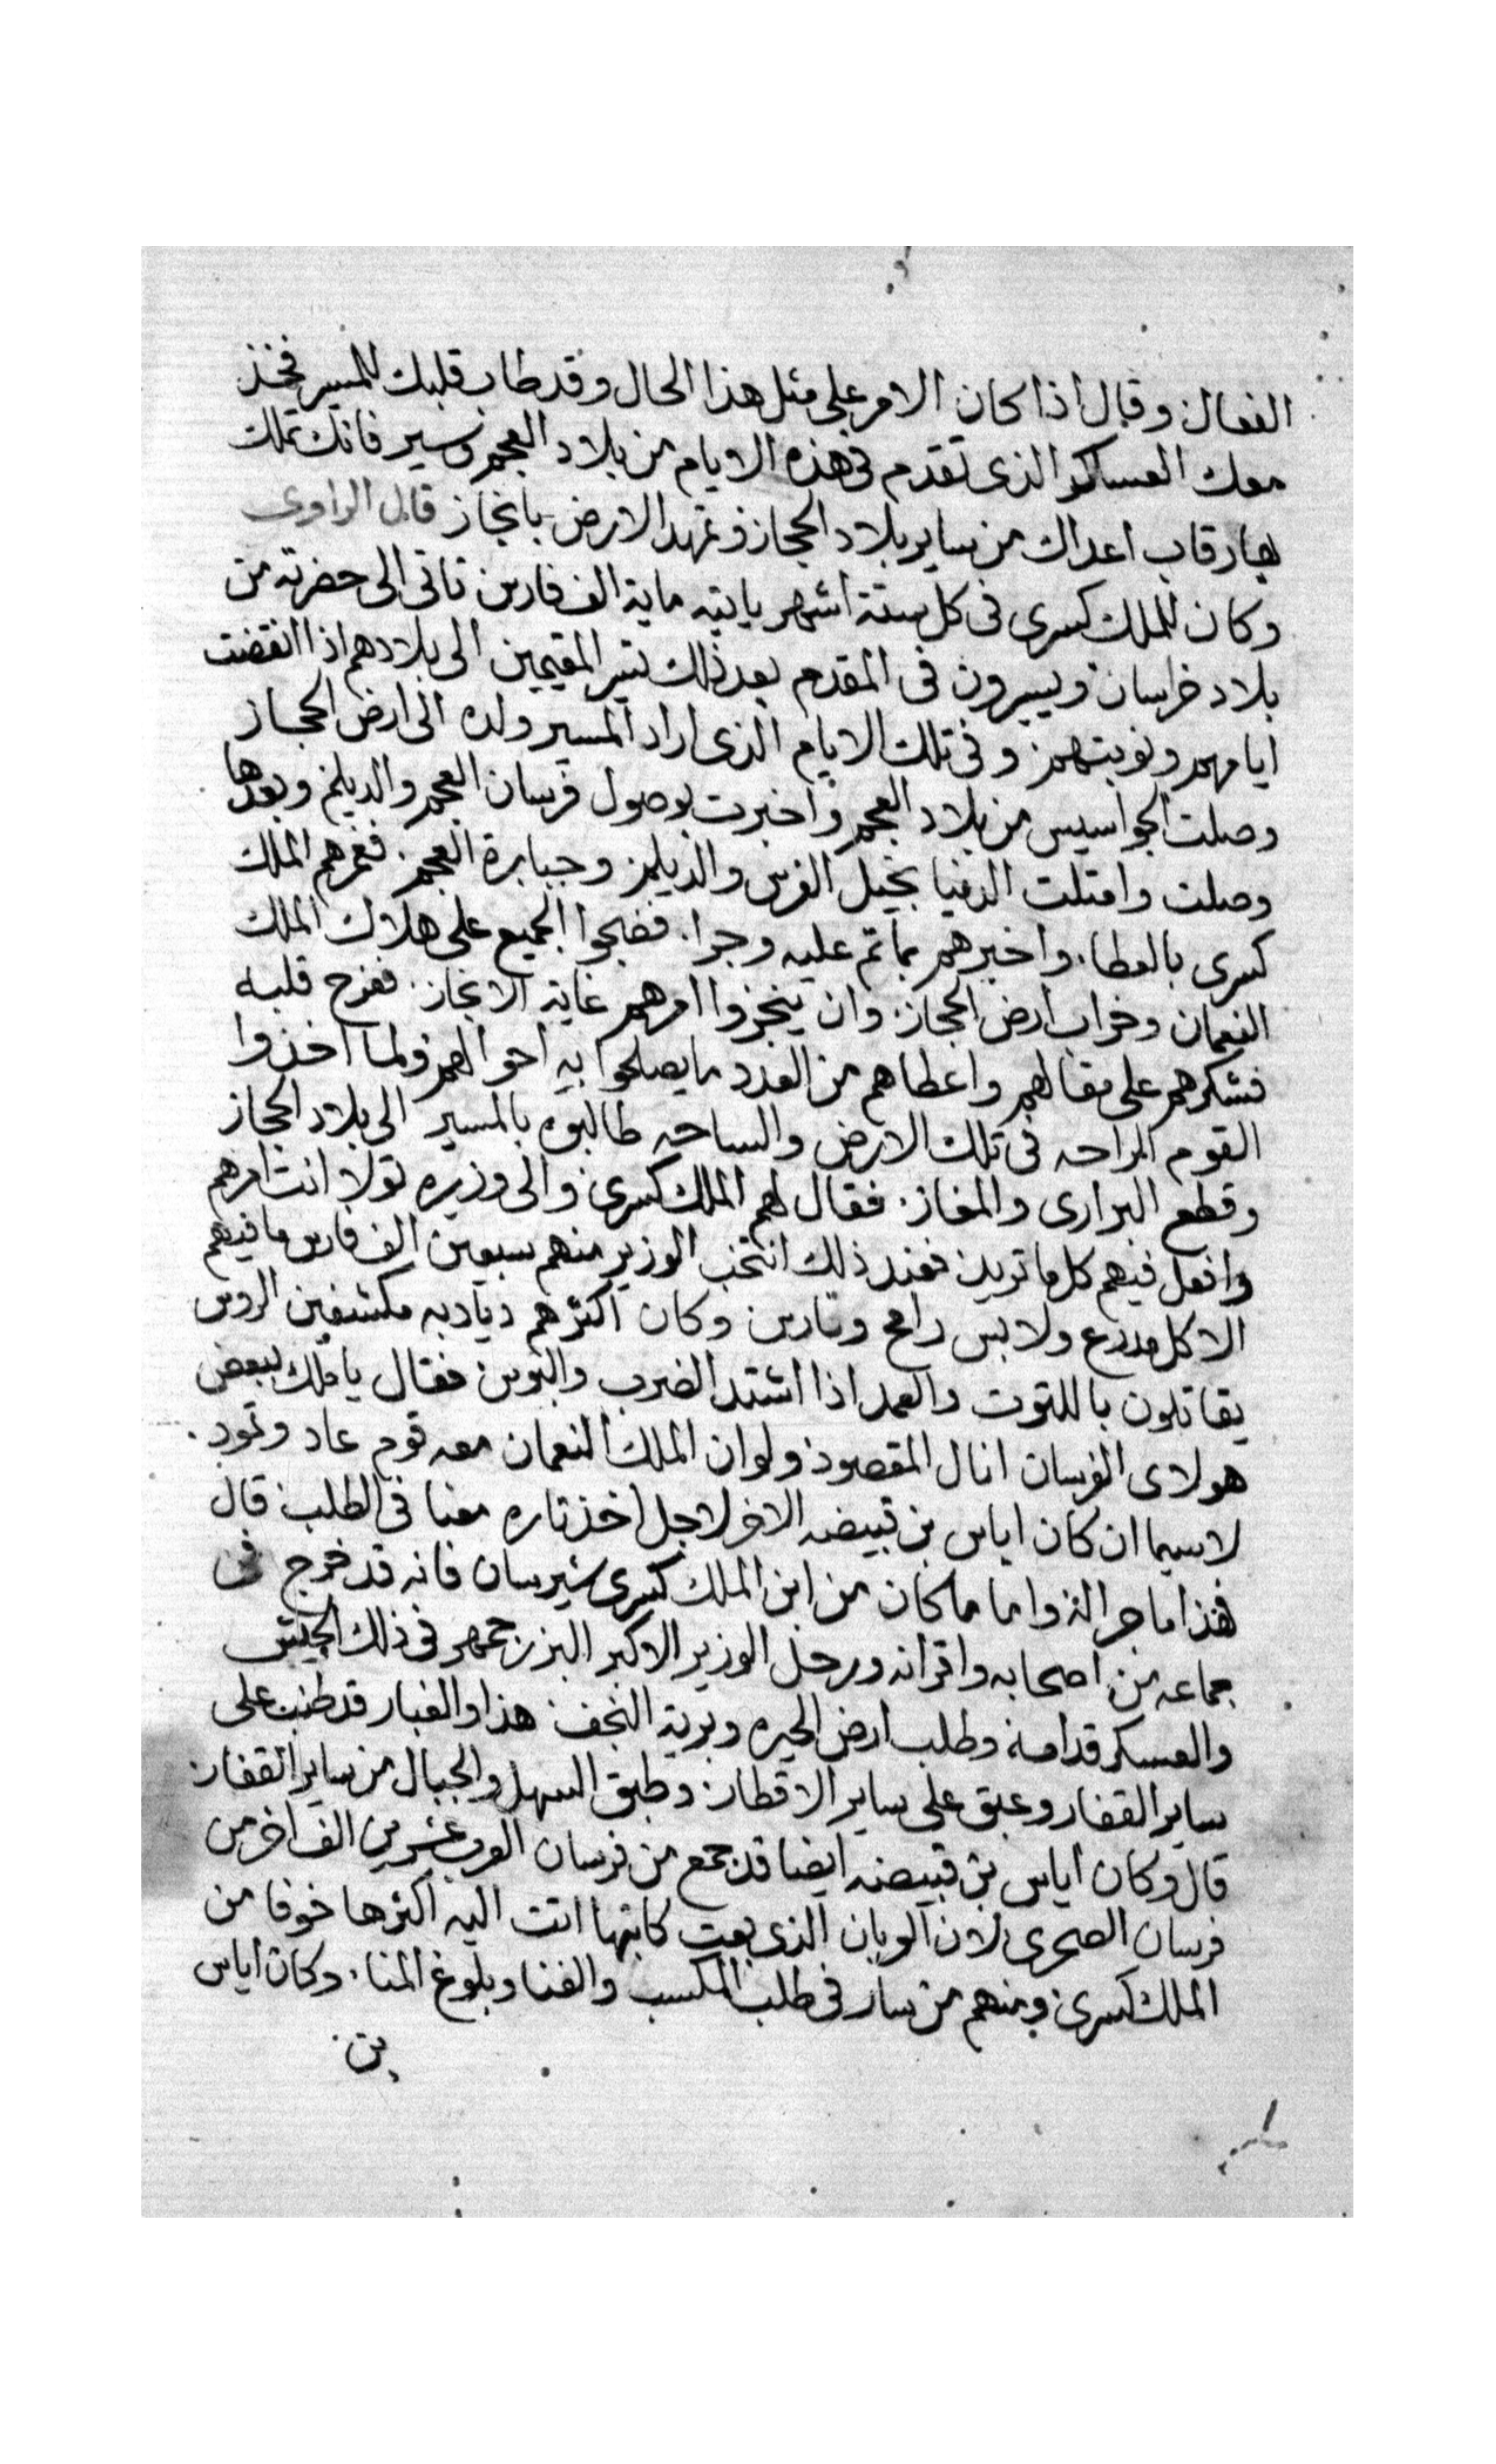 الفعال وقال اذا كان الامر على مثل هذا الحال وقد طاب قلبك للمسير فخذ
معك العساكر الذى تقدم فى هذه الايام من بلاد العجم وسير فانك تملك
بها رقاب اعداك من ساير بلاد الحجاز وتمهد الارض بانجاز قال الراوى
وكان للملك كسرى فى كل ستة اشهر ياتيه ماية الف فارس تاتى الى حضرته من
بلاد خراسان ويسيرون فى المقدم بعد ذلك تسير المقيمين الى بلادهم اذا انقضت
ايامهم ونوبتهم وفى تلك الايام الذى اراد المسير ولده الى ارض الحجاز
وصلت الجواسيس من بلاد العجم واخبرت بوصول فرسان العجم والديلم وبعدها
وصلت وامتلت الدنيا بخيل الفرس والديلم وجبابرة العجم فغمرهم الملك
كسرى بالعطا واخبرهم بما تم عليه وجرا فضجوا الجميع على هلاك الملك
النعمان وخراب ارض الحجاز وان ينجزوا امرهم غاية الانجاز ففرح قلبه
فشكرهم على مقالهم واعطاهم من العدد ما يصلحوا به احوالهم ولما اخذوا
القوم الراحه فى تلك الارض والساحه طالبوه بالمسير الى بلاد الحجاز
وقطع البرارى والمفاز فقال لهم الملك كسرى والى وزيره تولا انت امرهم
وافعل فيهم كل ما تريد فعند ذلك انتخب الوزير منهم سبعين الف فارس ما فيهم
الا كل مدرع ولابس رامح وتارس وكان اكثرهم ديادبه مكشفين الروس
يقاتلون باللتوت والعمد اذا اشتد الضرب والبوس فقال يا ملك ببعض
هولاى الفرسان انال المقصود ولو ان الملك النعمان معه قوم عاد وثمود
لا سيما ان كان اياس بن قبيضه الاخر لاجل اخذ تاره معنا فى الطلب قال
فهذا ما جرا لهذا واما ما كان من ابن الملك كسرى شيرسان فانه قد خرج فى
جماعه من اصحابه واقرانه ورحل الوزير الاكبر البزرجمهر فى ذلك الجيش
والعسكر قدامه وطلب ارض الحيره وبرية النجف هذا والغبار قد طنب على
ساير القفار وعبق على ساير الاقطار وطبق السهل والجبال من ساير القفار
قال وكان اياس بن قبيضه ايضا قد جمع من فرسان العرب عشرين الف اخر من
فرسان الصحرى لان العربان الذى بعت كاتبها اتت اليه اكثرها خوفا من
الملك كسرى ومنهم من سار فى طلب المكسب والغنا وبلوغ المنا وكان اياس
بن